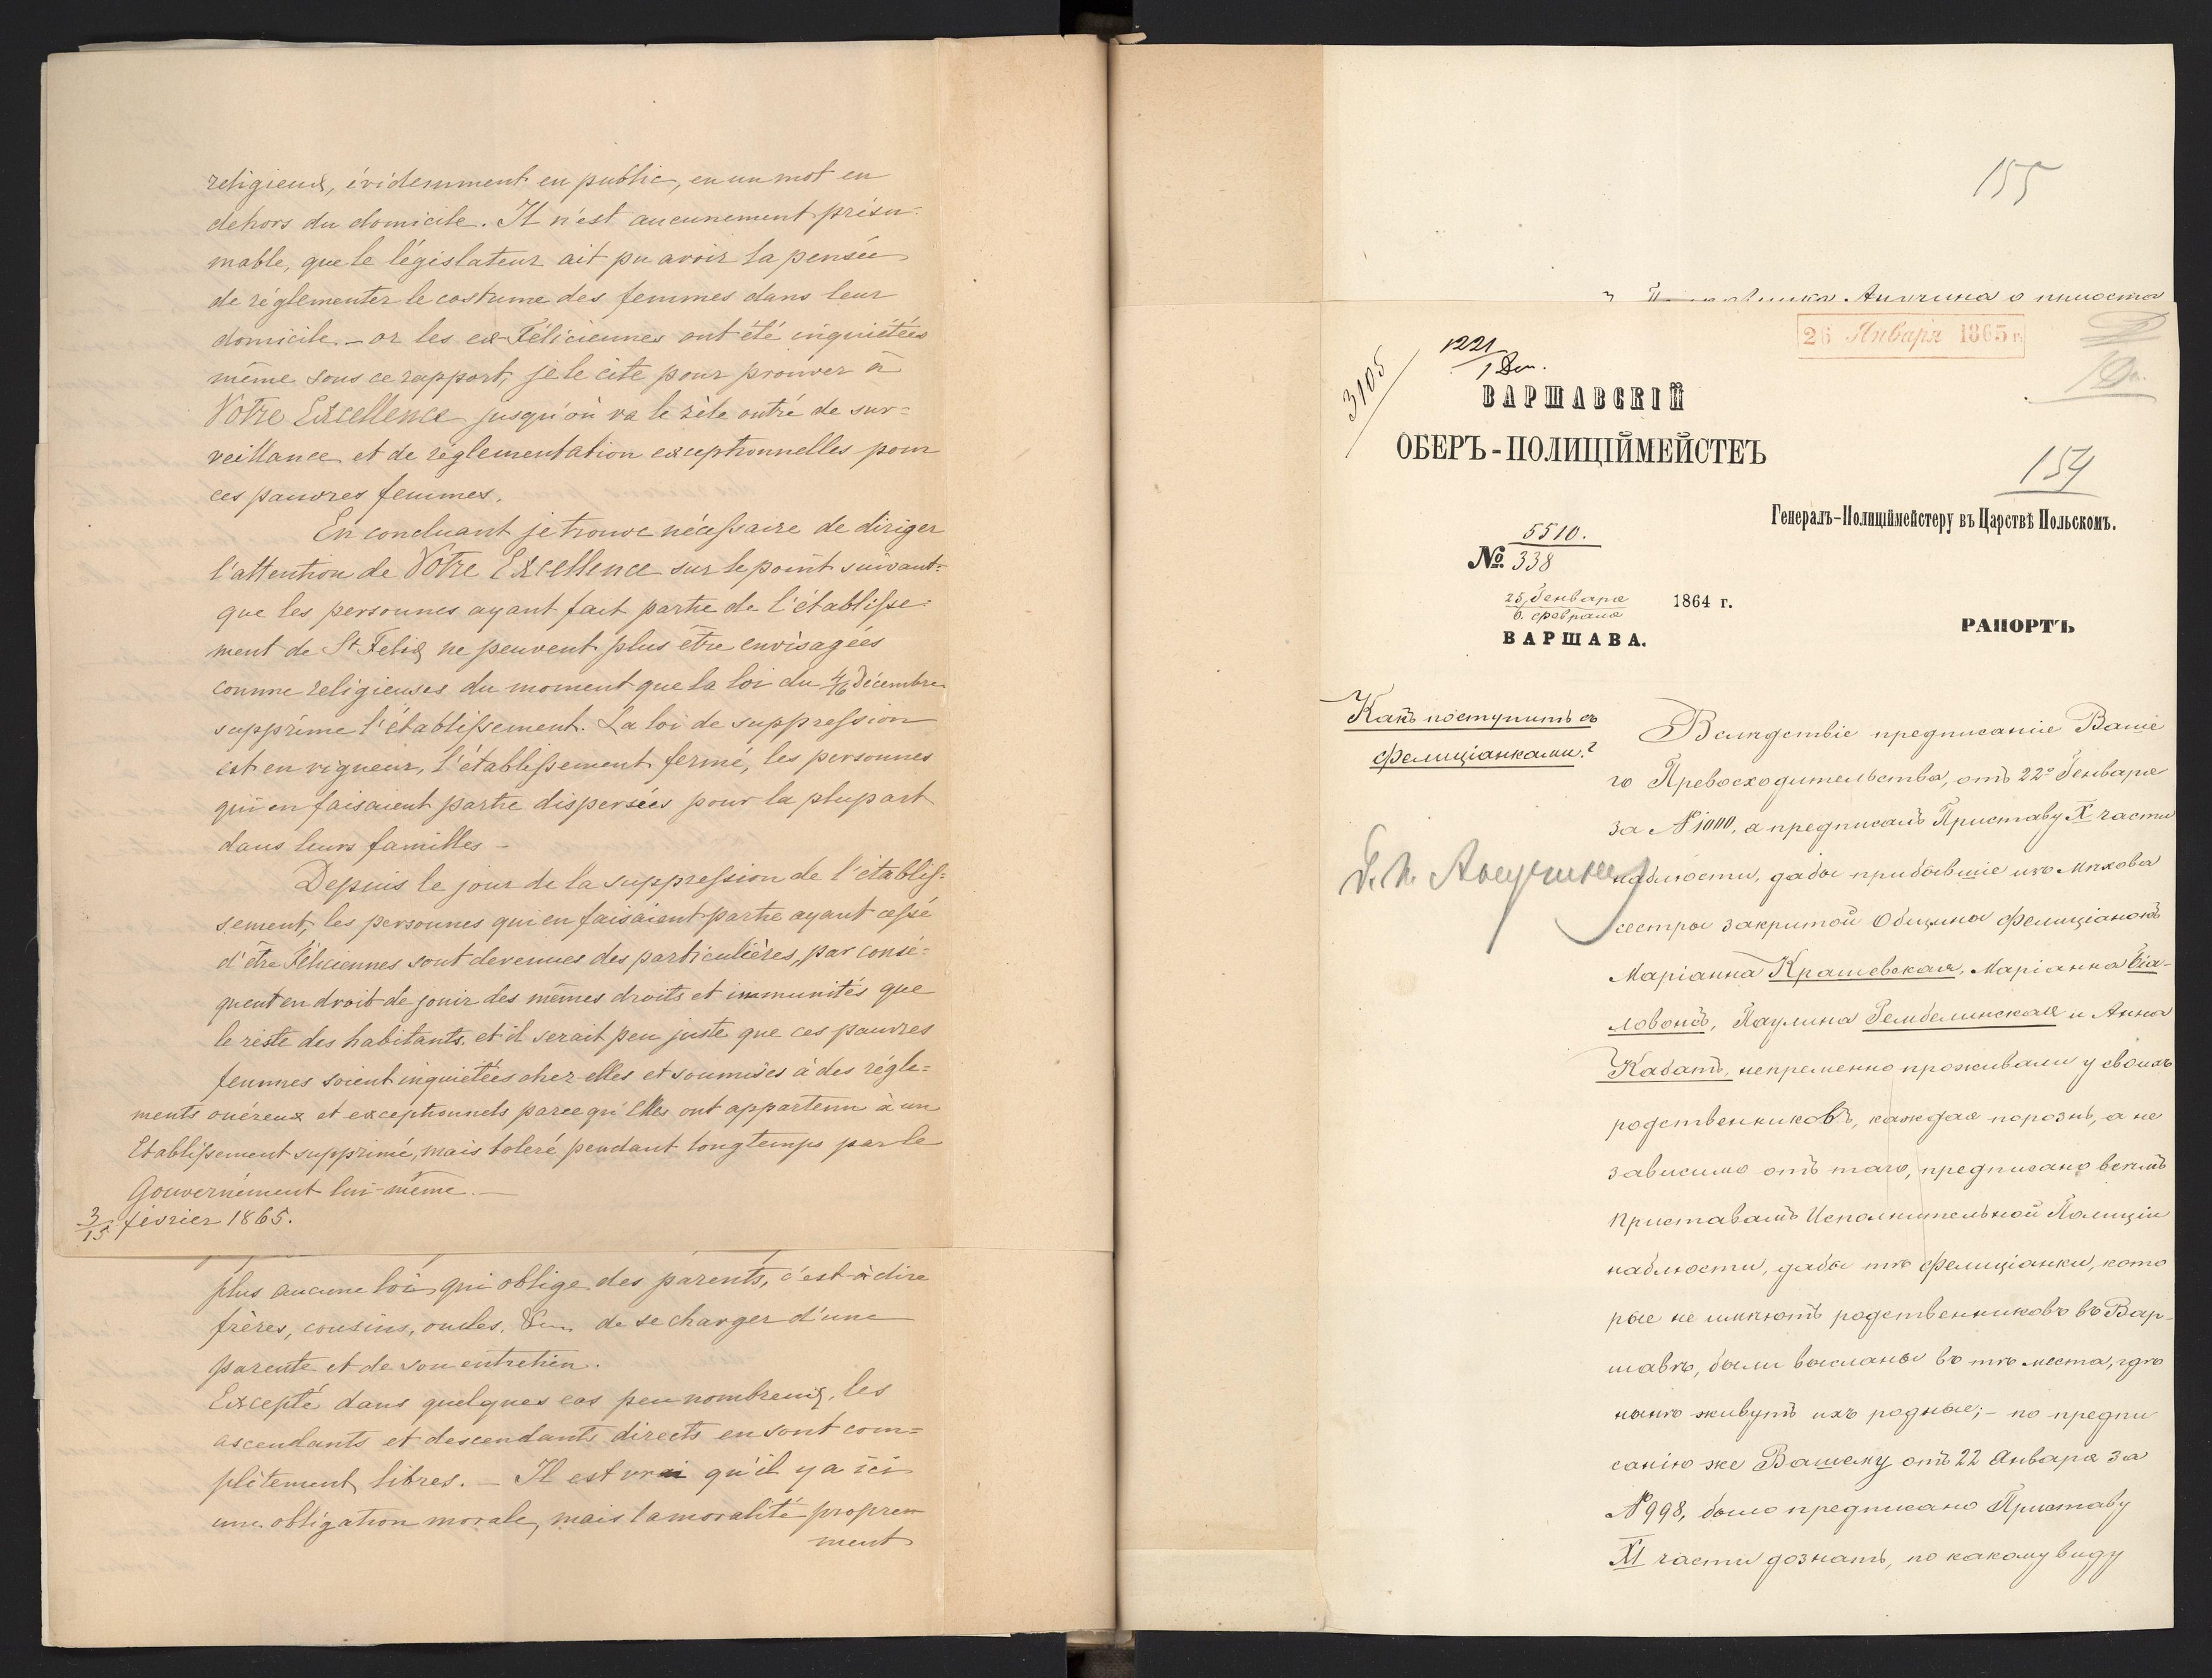 religieux, évidemment en public, en un mot en
dehors du domicile. Il n'est aucunement présu-
mable, que le législateur ait pu avoir la pensée
de réglementer le costume des femmes dans leur
domicile – or les ex-Féliciennes ont été inquiétées
même sous ce rapport, je le cite pour prouver à
Votre Excellence jusqu'où va le zèle outré de sur=
veillance et de réglementation exceptionnelles pour
ces pauvres femmes.
En concluant je trouve nécessaire de diriger
l'attention de Votre Excellence sur le point suivant:
que les personnes ayant fait partie de l'établisse-
ment de St Felix ne peuvent plus être envisagées
comme religieuses du moment que la loi du 4/16 Décembre
supprime l'établissement. La loi de suppression
est en vigueur, l'établissement fermé, les personnes
qui en faisaient partie dispersées pour la plupart
dans leurs familles –
Depuis le jour de la suppression de l'établis=
sement, les personnes qui en faisaient partie ayant cessé
d'être Féliciennes sont devenues des particulières, par consé=
quent en droit de jouir des mêmes droits et immunités que
le reste des habitants, et il serait peu juste que ces pauvres
femmes soient inquiétées chez-elles et soumises à des régle=
ments onéreux et exceptionnels parce qu'Elles ont appartenu à un
Etablissement supprimé, mais toleré pendant longtemps par le
Gouvernement lui-même. –
3/15 février 1865.
plus aucune loi qui oblige des parents, c'est-à dire
frères, cousins, oncles, de se charger d'une
parente et de son entretien.
Excepté dans quelques cas peu nombreux, les
ascendants et descendants directs en sont com=
plètement libres. – Il est vrai qu'il y a ici
une obligation morale, mais la moralité proprem
ment
155
26 Января 1865 г.
3105
1221
1 Дп.
ВАРШАВСКІЙ
ОБЕРЪ-ПОЛИЦІЙМЕЙСТЕЪ
154
Генералъ-Полиціймейстеру въ Царствѣ Польскомъ.
5510.
№ 338
25 Генваря
6. февраля
1864 г.
ВАРШАВА.
РАПОРТЪ
Какъ поступить съ
Фелиціанками?
Вследствіе предписаніе Ваше
го Превосходительства, отъ 22го Генваря
за № 1000, а предписалъ Приставу X части
наблюсти, дабы прибывшіе изъ Мѣхова
сестры закритой Общины Фелиціанокъ
Маріанна Крашевская, Маріанна Бія-
ловонсъ, Паулина Гембелинская и Анна
Кабатъ, непременно проживали у своихъ
родственниковъ, каждая порознь, а не
зависимо отъ того, предписано всѣмъ
Приставамъ Исполнительной Полиціи
наблюсти, дабы тѣ фелиціанки, кото
рые не имѣютъ родственниковъ въ Вар-
шавѣ, были высланы въ тѣ места, гдѣ
нынѣ живутъ ихъ родные; – по предпи
санію же Вашему отъ 22 Января за
№ 998, было предписано Приставу
XI части дознать, по какому виду